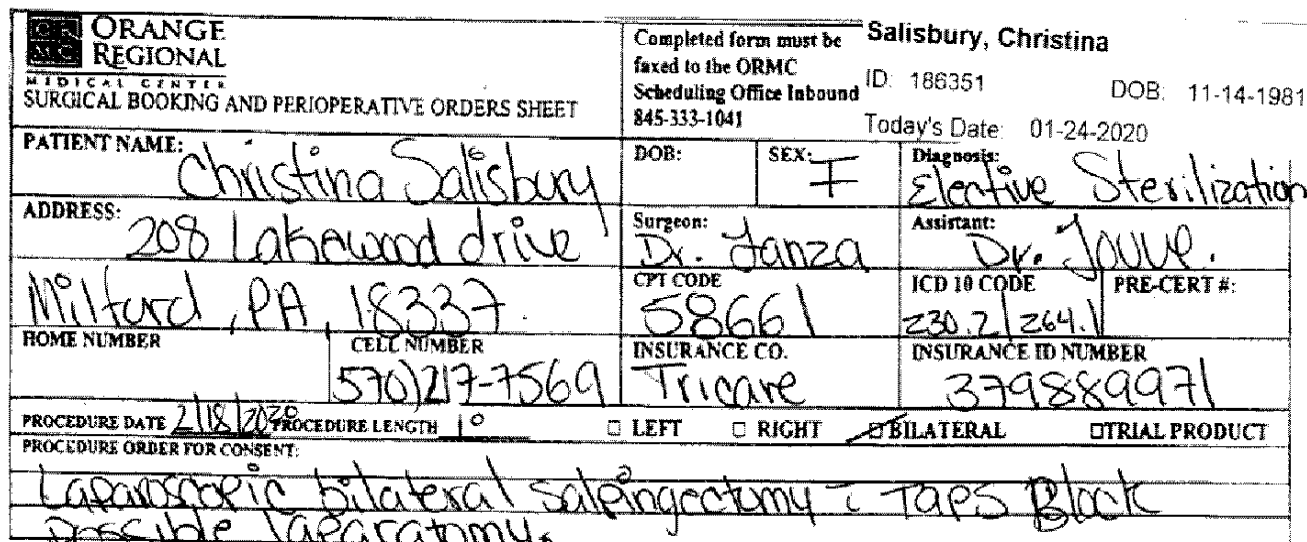 ORANGE
REGIONAL
MEDICAL CENTER
SURGICAL BOOKING AND PERIOPERATIVE ORDERS SHEET
Completed form must be
faxed to the ORMC
Scheduling Office Inbound
845-333-1041
Salisbury, Christina
ID: 186351 DOB: 11-14-1981
Today's Date: 01-24-2020
PATIENT NAME: Christina Salisbury
DOB:
SEX: F
Diagnosis: Elective Sterilization
ADDRESS: 208 Lakewood drive
Surgeon: Dr. Fanza
Assistant: Dr. Jouve.
Milford, PA, 18337.
CPT CODE 58661
ICD 10 CODE Z30.2/Z64.1
PRE-CERT #:
HOME NUMBER
CELL NUMBER 570)217-7569
INSURANCE CO. Tricare
INSURANCE ID NUMBER 379889971
PROCEDURE DATE 2/18/2020 PROCEDURE LENGTH 1° □ LEFT □ RIGHT □ BILATERAL □ TRIAL PRODUCT
PROCEDURE ORDER FOR CONSENT:
Laparoscopic bilateral salpingectomy c TAPS Block
possible laparatomy.